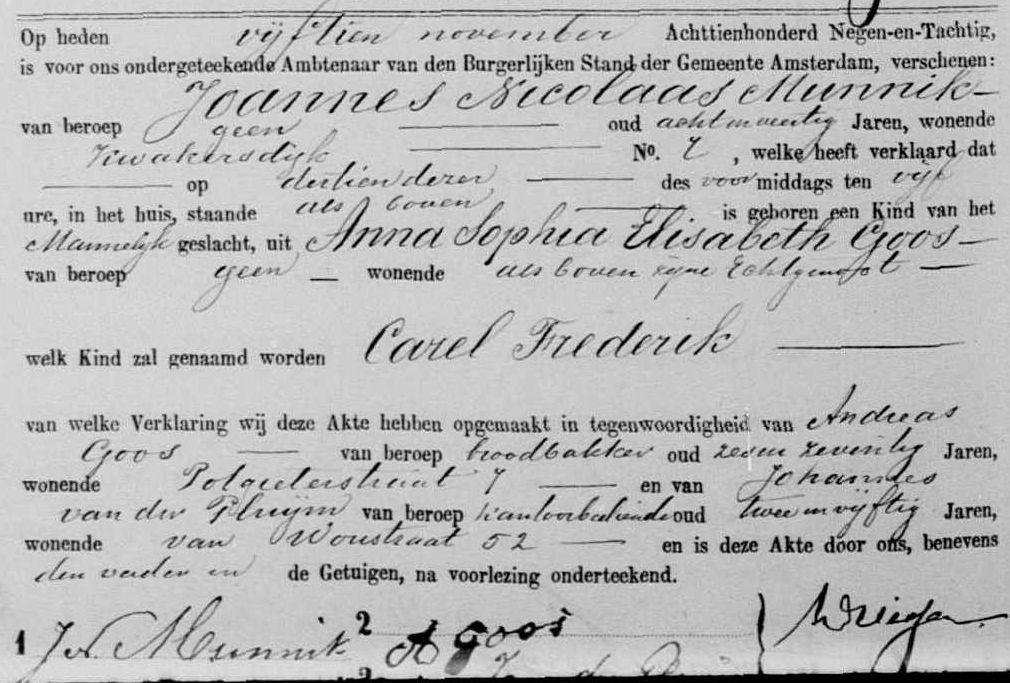 Op heden vijftien november Achttienhonderd Negen-en-Tachtig,
is voor ons ondergeteekende Ambtenaar van den Burgerlijken Stand der Gemeente Amsterdam, verschenen:
Joannes Nicolaas Munnik
van beroep geen oud achtenveertig Jaren, wonende
Kwakersdijk No. 7, welke heeft verklaard dat
op dertien dezer des voormiddags ten vijf
ure, in het huis, staande als boven is geboren een Kind van het
Mannelijk geslacht, uit Anna Sophia Elisabeth Goos
van beroep geen wonende als boven zijne Echtgenoot
welk Kind zal genaamd worden Carel Frederik
van welke Verklaring wij deze Akte hebben opgemaakt in tegenwoordigheid van Andreas
Goos van beroep broodbakker oud zeven zeventig Jaren,
wonende Potgieterstraat 7 en van Johannes
van der Pluijm van beroep kantoorbediende oud twee en vijftig Jaren,
wonende van Woustraat 52 en is deze Akte door ons, benevens
den vader en de Getuigen, na voorlezing onderteekend.
1 J N Munnik 2 A Goos